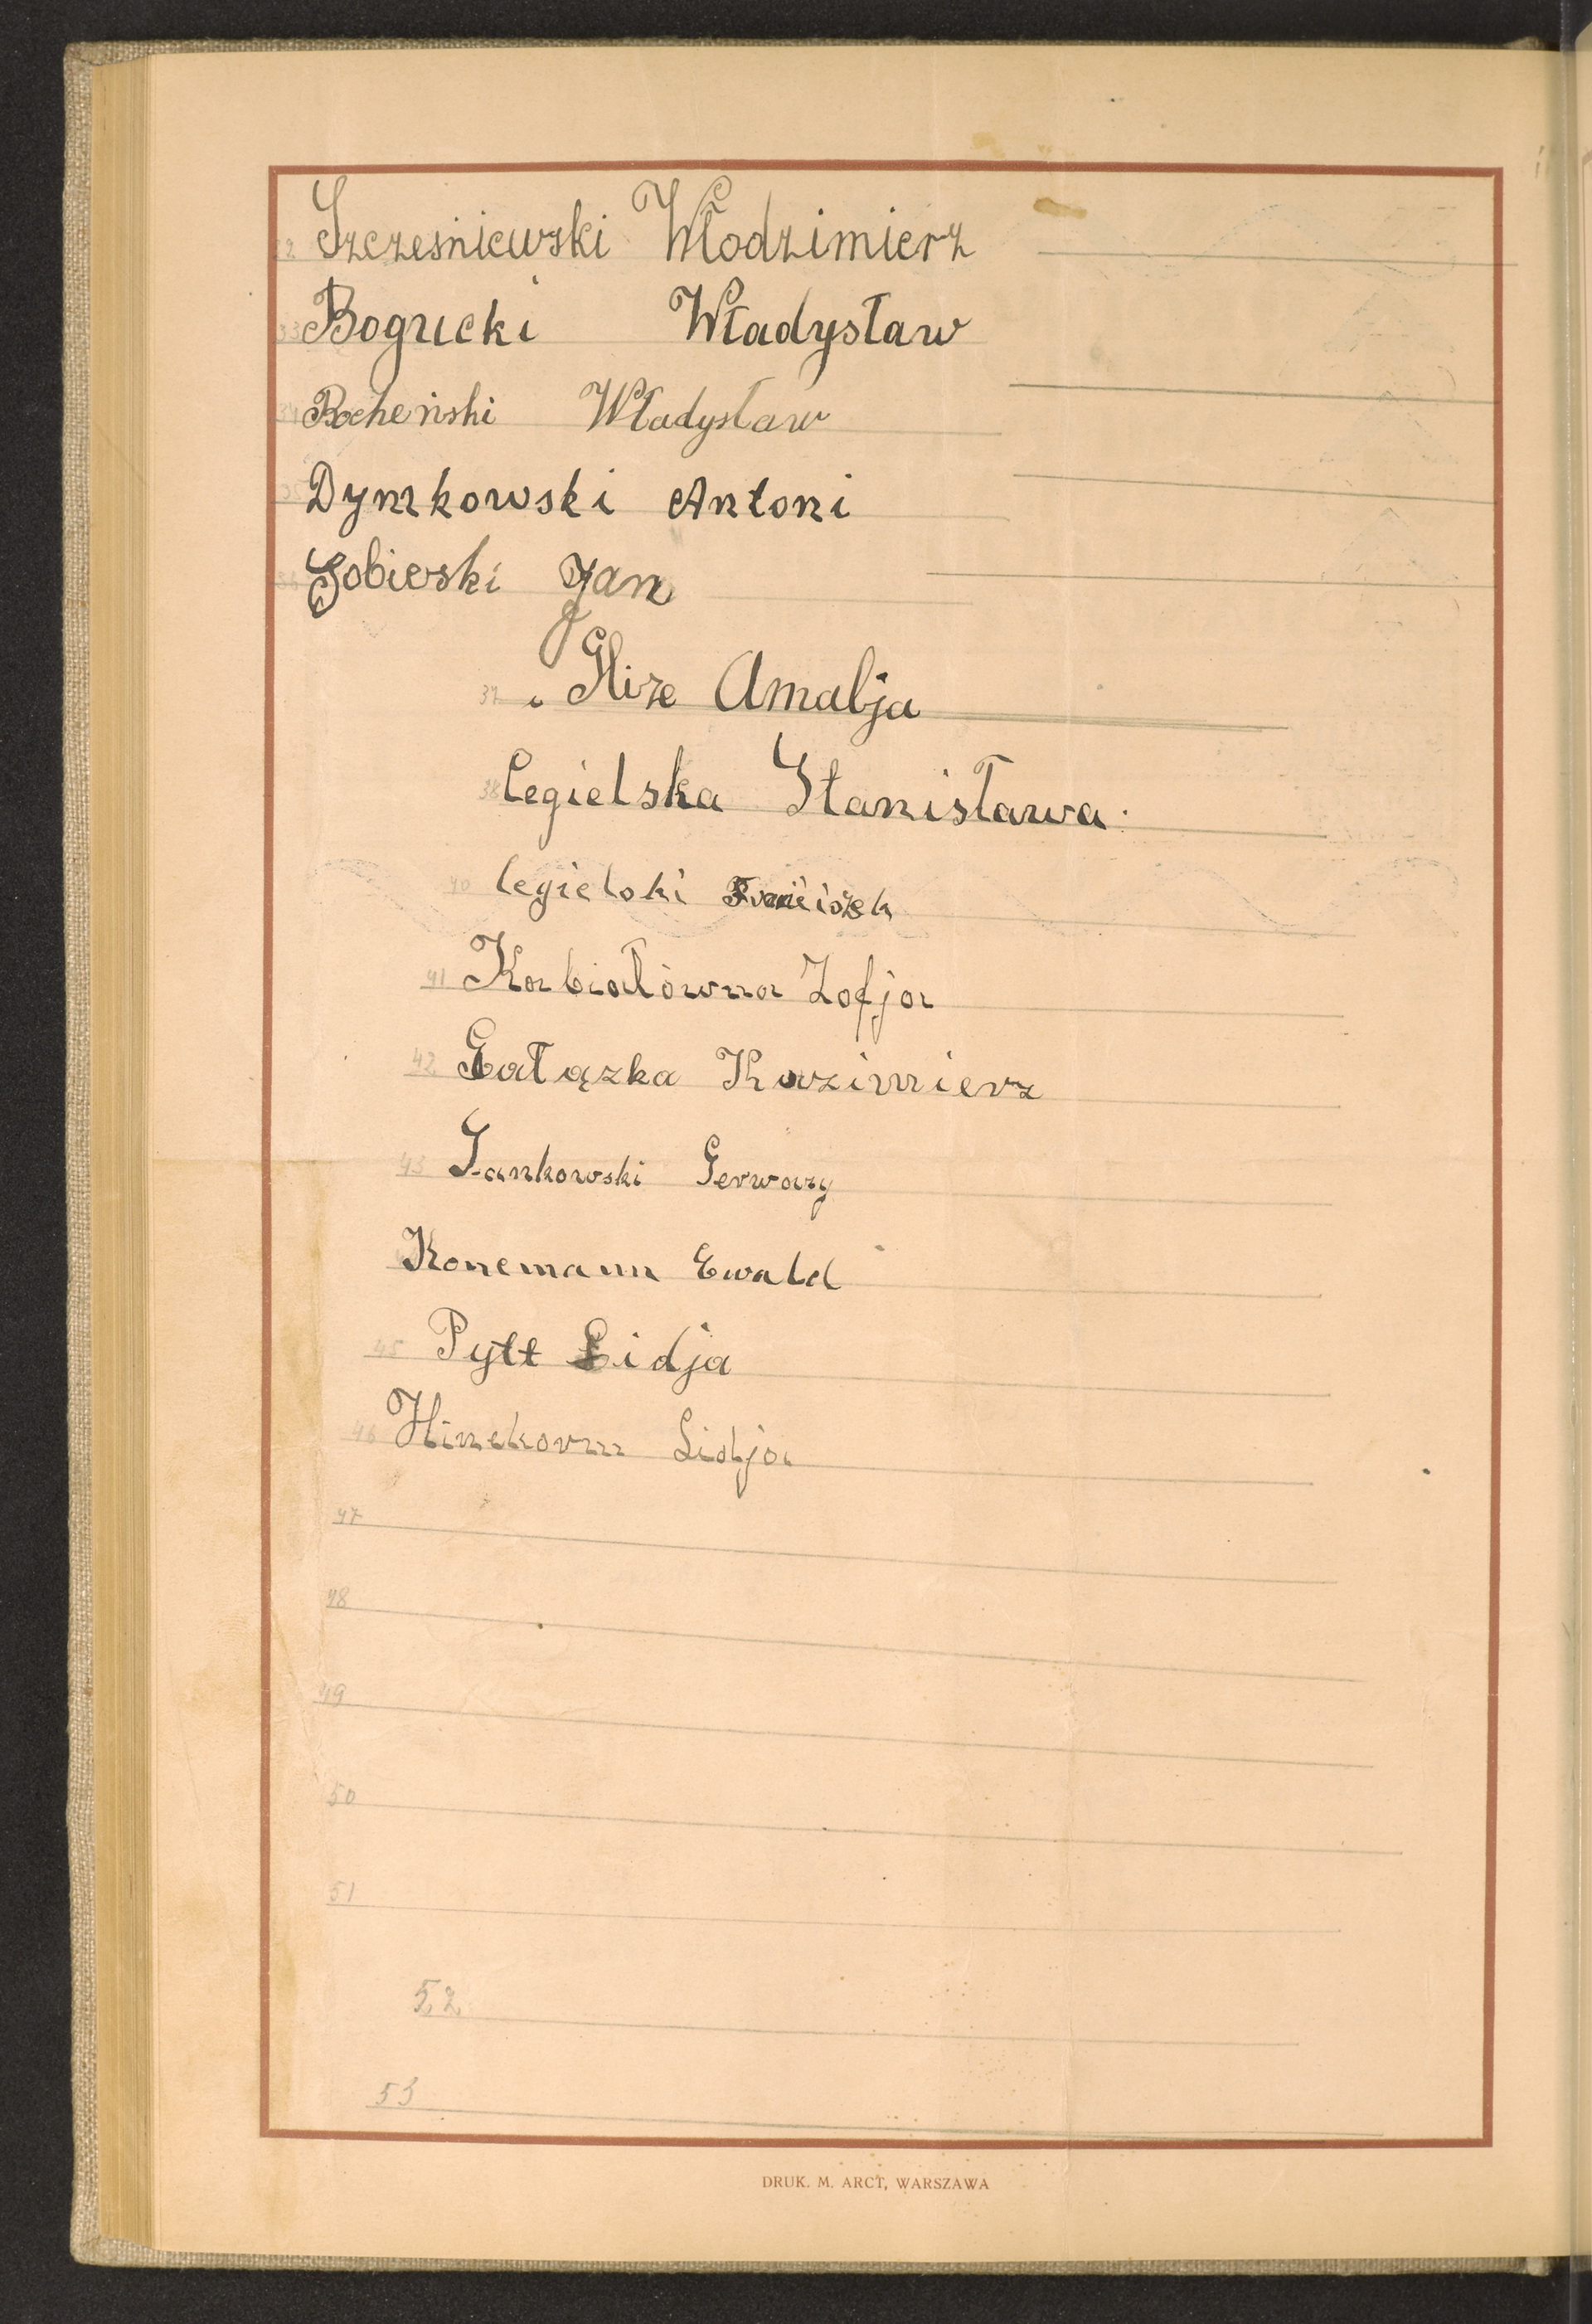 32 Szcześniewski Włodzimierz
33 Bogucki Władysław
34 Bocheński Władysław
35 Dymkowski Antoni
36 Sobieski Jan
37 Hize Amalja
38 Cegielska Stanisława
40 Cegielski Franciszek
41 Kabiałówna Zofja
42 Gałązka Kazimierz
43 Jankowski Gerwazy
Konemann Ewald
45 Pytt Lidja
46 Lidja
47
48
49
50
51
52
53
DRUK. M. ARCT, WARSZAWA